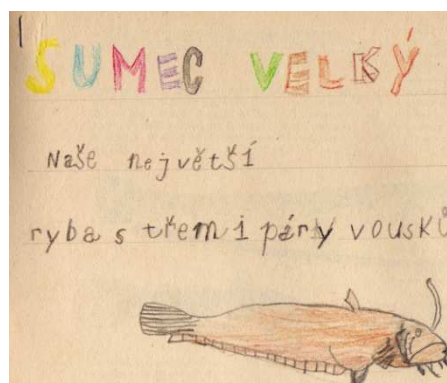 SUMEC VELKÝ
Naše největší
ryba s třemi páry vousků